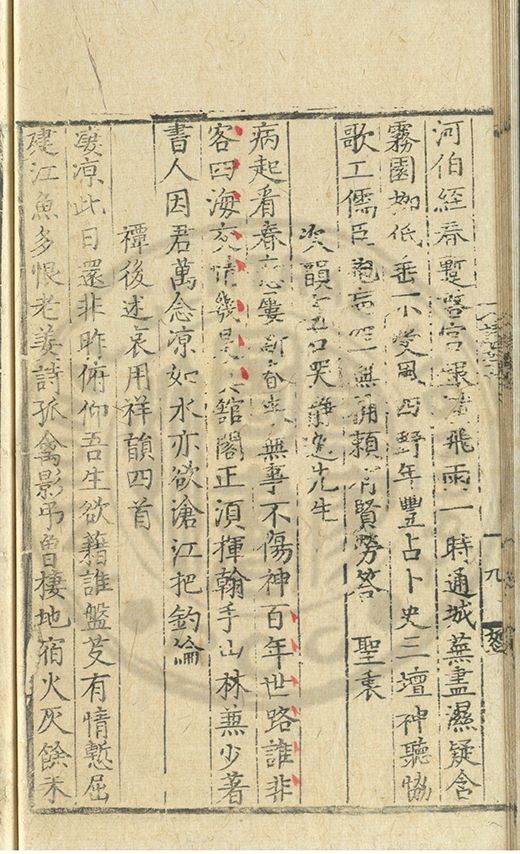 河伯經春蹔啓宮飛雨一時通城蕪盡濕疑含
霧園柳低垂不受風西野年豊占卜史三壇神聽協
歌工儒臣忘無賴有賢勞答 聖衷
次韻哭先生
病起看春無事不傷神百年世路誰非
客四海交情幾是舘閣正須揮翰手山林兼少著
書人因君萬念凉如水亦欲滄江把釣綸
禫後述哀用祥韻四首
凄凉此日還非昨俯仰吾生欲籍誰盤芰有情慙屈
建江魚多恨老姜詩孤禽影弔曾棲地宿火灰餘未